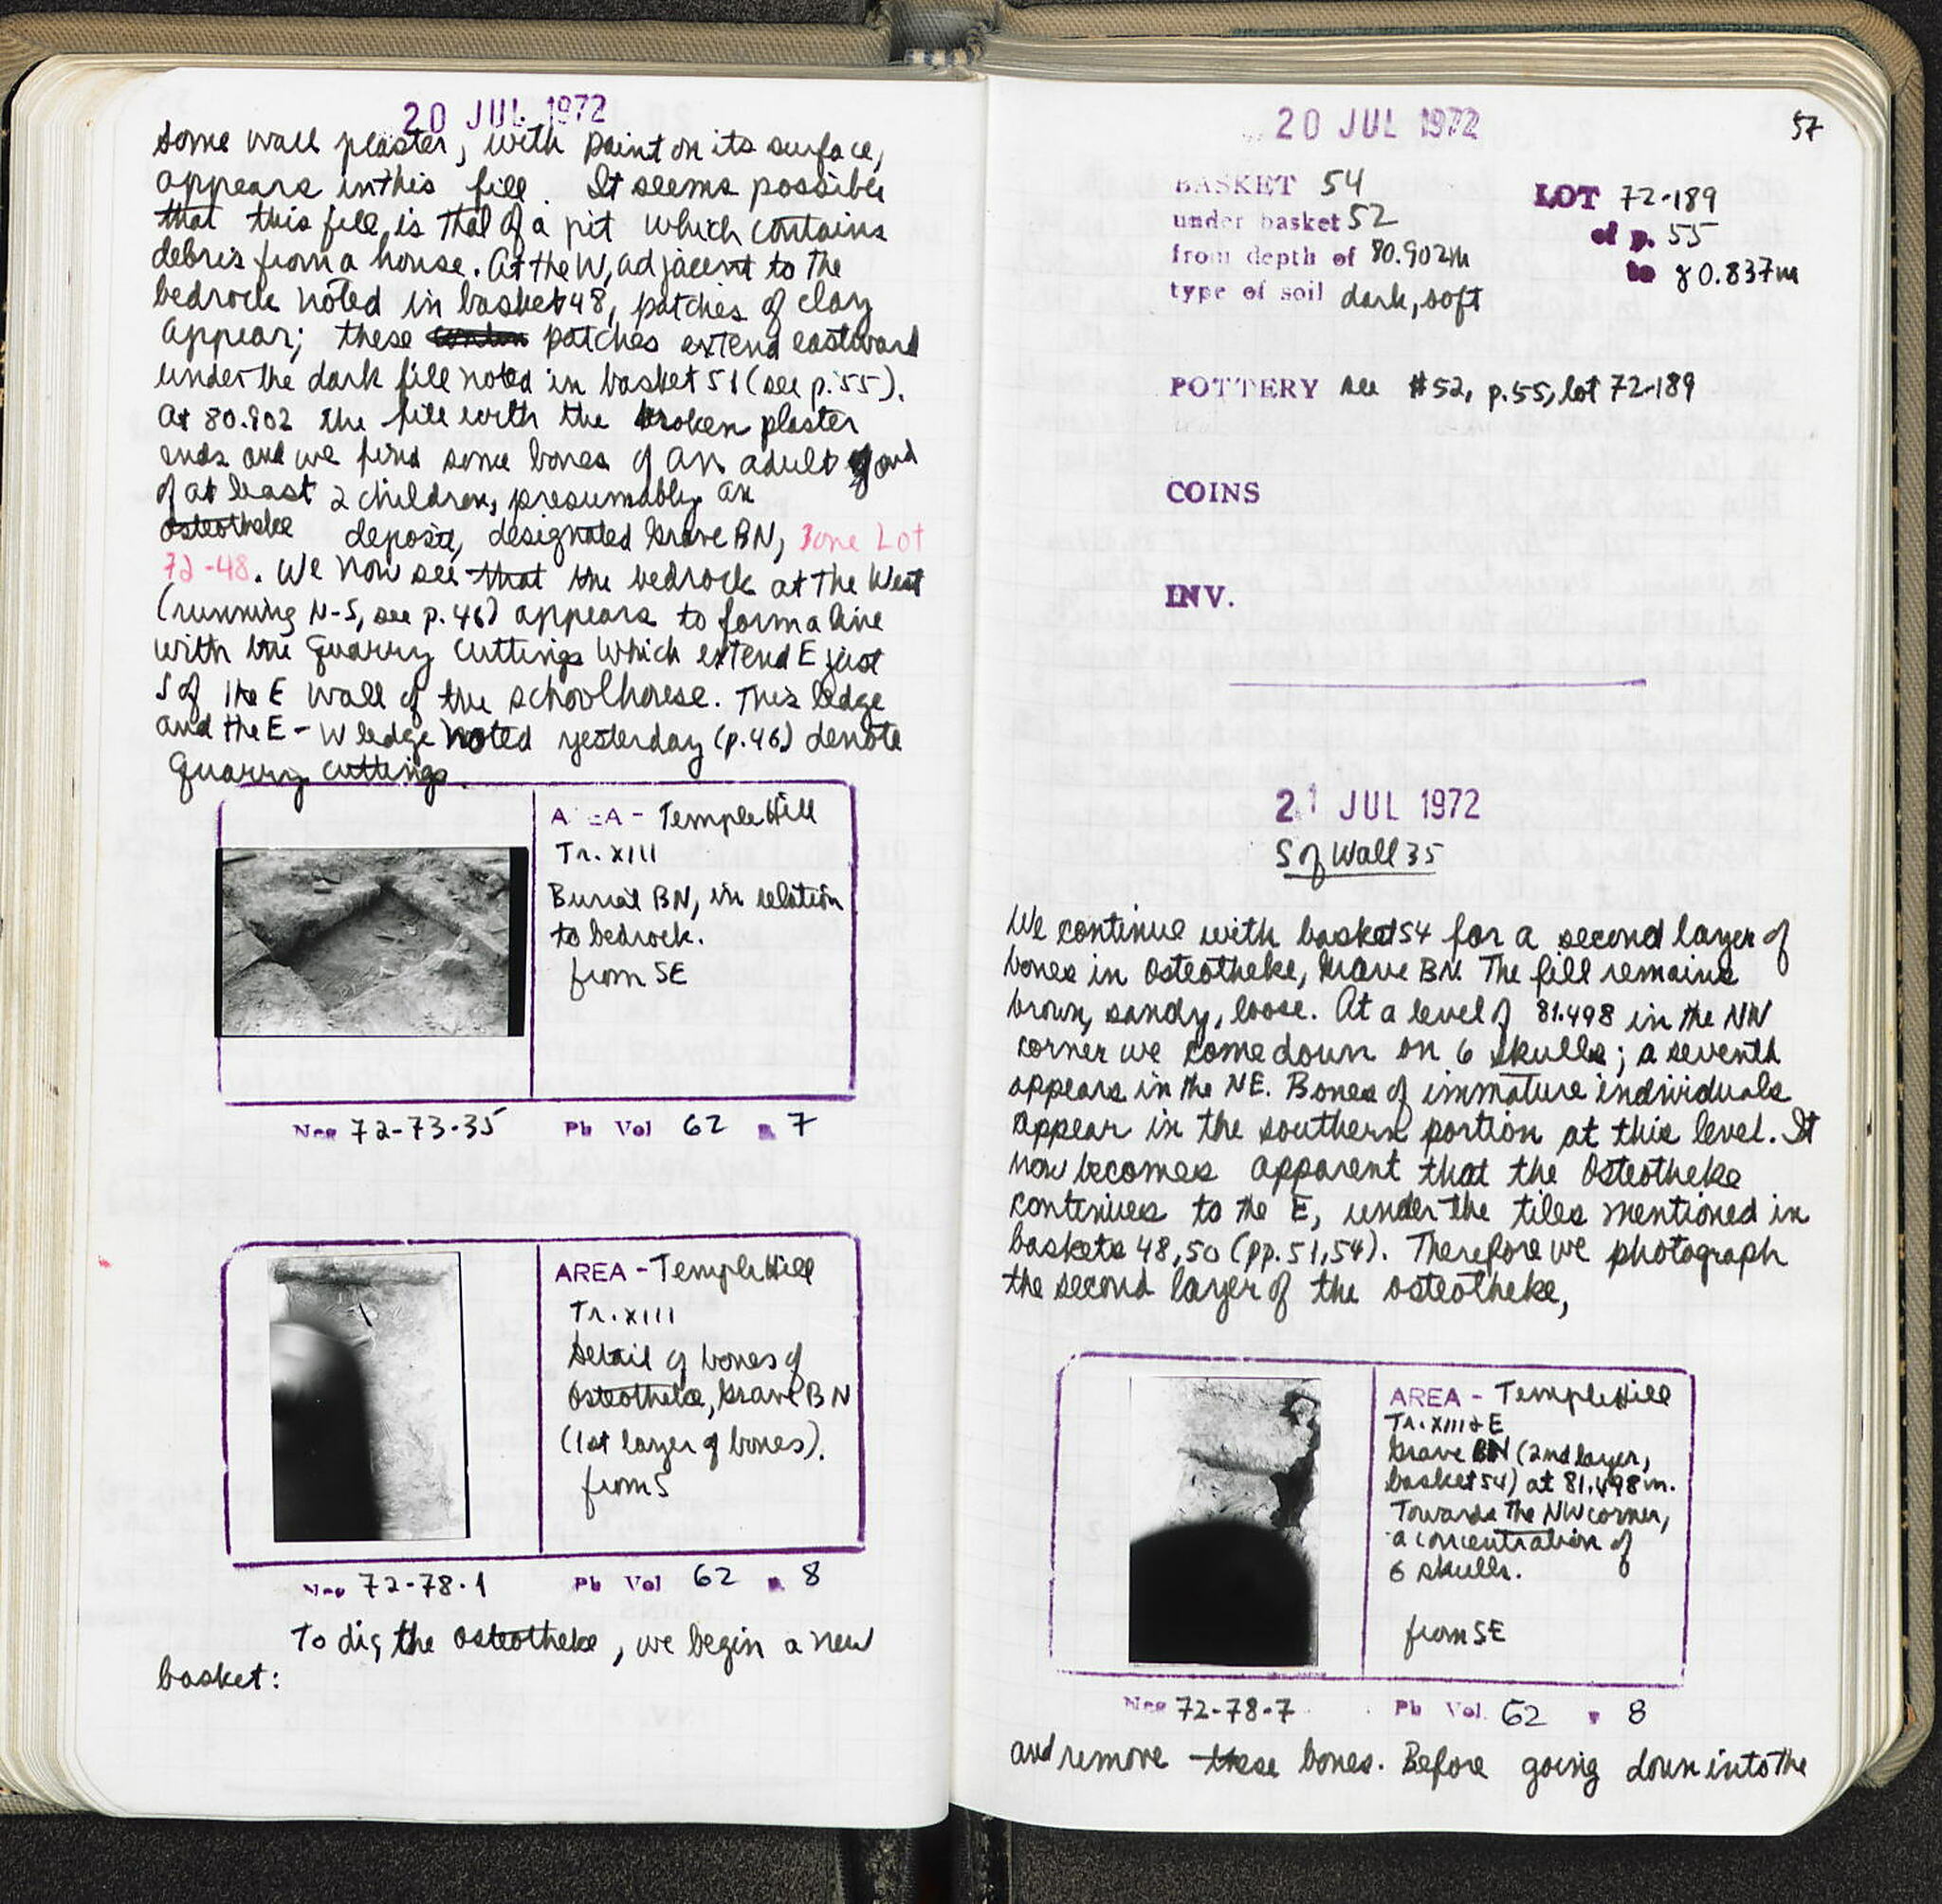 20 JUL 1972
some wall plaster, with paint on its surface,
appears in this fill. It seems possible
that this fill is that of a pit which contains
debris from a house. At the W, adjacent to the
bedrock noted in basket 48, patches of clay
appear; these patches extend eastward
under the dark fill noted in basket 51 (see p. 55).
At 80.902 the fill with the broken plaster
ends and we find some bones of an adult and
of at least 2 children, presumably an
osteotheke deposit, designated Grave BN, Bone Lot
72-48. We now see that the bedrock at the West
(running N-S, see p. 46) appears to form a line
with the quarry cuttings which extend E just
S of the E wall of the schoolhouse. This ledge
and the E-W ledge noted yesterday (p. 46) denote
quarry cuttings.
AREA - Temple Hill
Tr. XIII
Burial BN, in relation
to bedrock.
from SE
Neg 72-73-35 Ph Vol 62 p 7
AREA - Temple Hill
Tr. XIII
Detail of bones of
Osteotheke, Grave BN
(1st layer of bones).
from S
Neg 72-78-1 Ph Vol 62 p 8
To dig the osteotheke, we begin a new
basket:
20 JUL 1972
57
BASKET 54 LOT 72-189
under basket 52 of p. 55
from depth of 80.902m to 80.837m
type of soil dark, soft
POTTERY see #52, p. 55, lot 72-189
COINS
INV.
21 JUL 1972
S of Wall 35
We continue with basket 54 for a second layer of
bones in Osteotheke, Grave BN. The fill remains
brown, sandy, loose. At a level of 81.498 in the NW
corner we come down on 6 skulls; a seventh
appears in the NE. Bones of immature individuals
appear in the southern portion at this level. It
now becomes apparent that the Osteotheke
continues to the E, under the tiles mentioned in
baskets 48, 50 (pp. 51, 54). Therefore we photograph
the second layer of the osteotheke,
AREA - Temple Hill
Tr. XIII & E
Grave BN (2nd layer,
basket 54) at 81.498 m.
Towards the NW corner,
a concentration of
6 skulls.
from SE
Neg 72-78-7 Ph Vol. 62 p 8
and remove these bones. Before going down into the